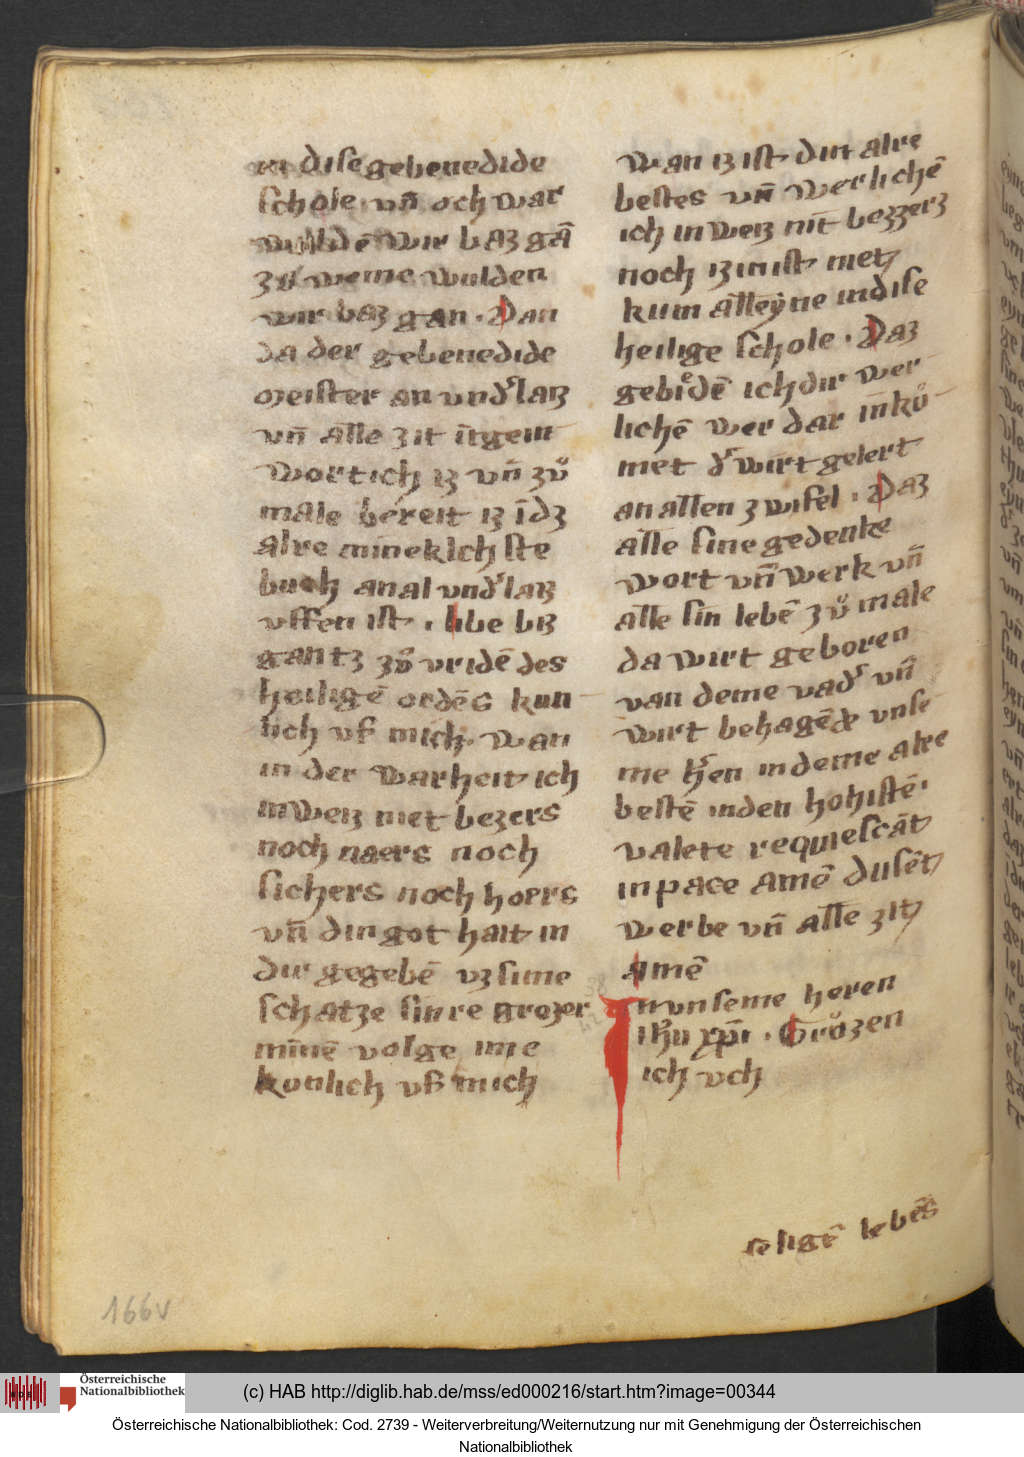 in dise gebenedide
schole · vn̄ och war
wuldē wir baz gā
zů weme wulden
wir baz gan · Dan
da der gebenedide
meister an vnd'laz
vn̄ alle zit īgein
wort ich iz vn̄ zů
male bereit iz īdz
alre minneklichste
buch an al vnd'laz
vffen ist · libe biz
gantz zů vridē des
heiligē ordēs kun
lich vf mich · wan
in der warheit ich
inweiz niet bezers
noch naers noch
sichers noch hoers
vn̄ din got hait in
dir gegebē vz sinne
schatze sinre grozer
minnē volge ime
konlich vf mich
wan iz ist din alre
bestes vn̄ werlichē
ich inweiz nit bezzerz
noch iz inist niet
kum alleyne indise
heilige schole · Daz
gebiedē ich dir wer
lichē wer dar inků
met d' wirt geleert
an allen zwifel · Daz
alle sine gedenke
wort vn̄ werk vn̄
alle sin lebē zů male
da wirt geboren
van deme vad' vn̄
wirt behagēde vnse
me h'ren in deme alre
bestē in den hohistē ·
valete requiescāt
in pace amē dusēt
werbe vn̄ alle zit
amē
In vnseme heren
ihū xp̄i · Gruozen
ich vch
seligē lebēs
166v
Österreichische
Nationalbibliothek
(c) HAB http://diglib.hab.de/mss/ed000216/start.htm?image=00344
Österreichische Nationalbibliothek: Cod. 2739 - Weiterverbreitung/Weiternutzung nur mit Genehmigung der Österreichischen
Nationalbibliothek